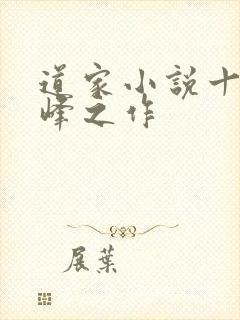 道家小説十
峰之作
展葉